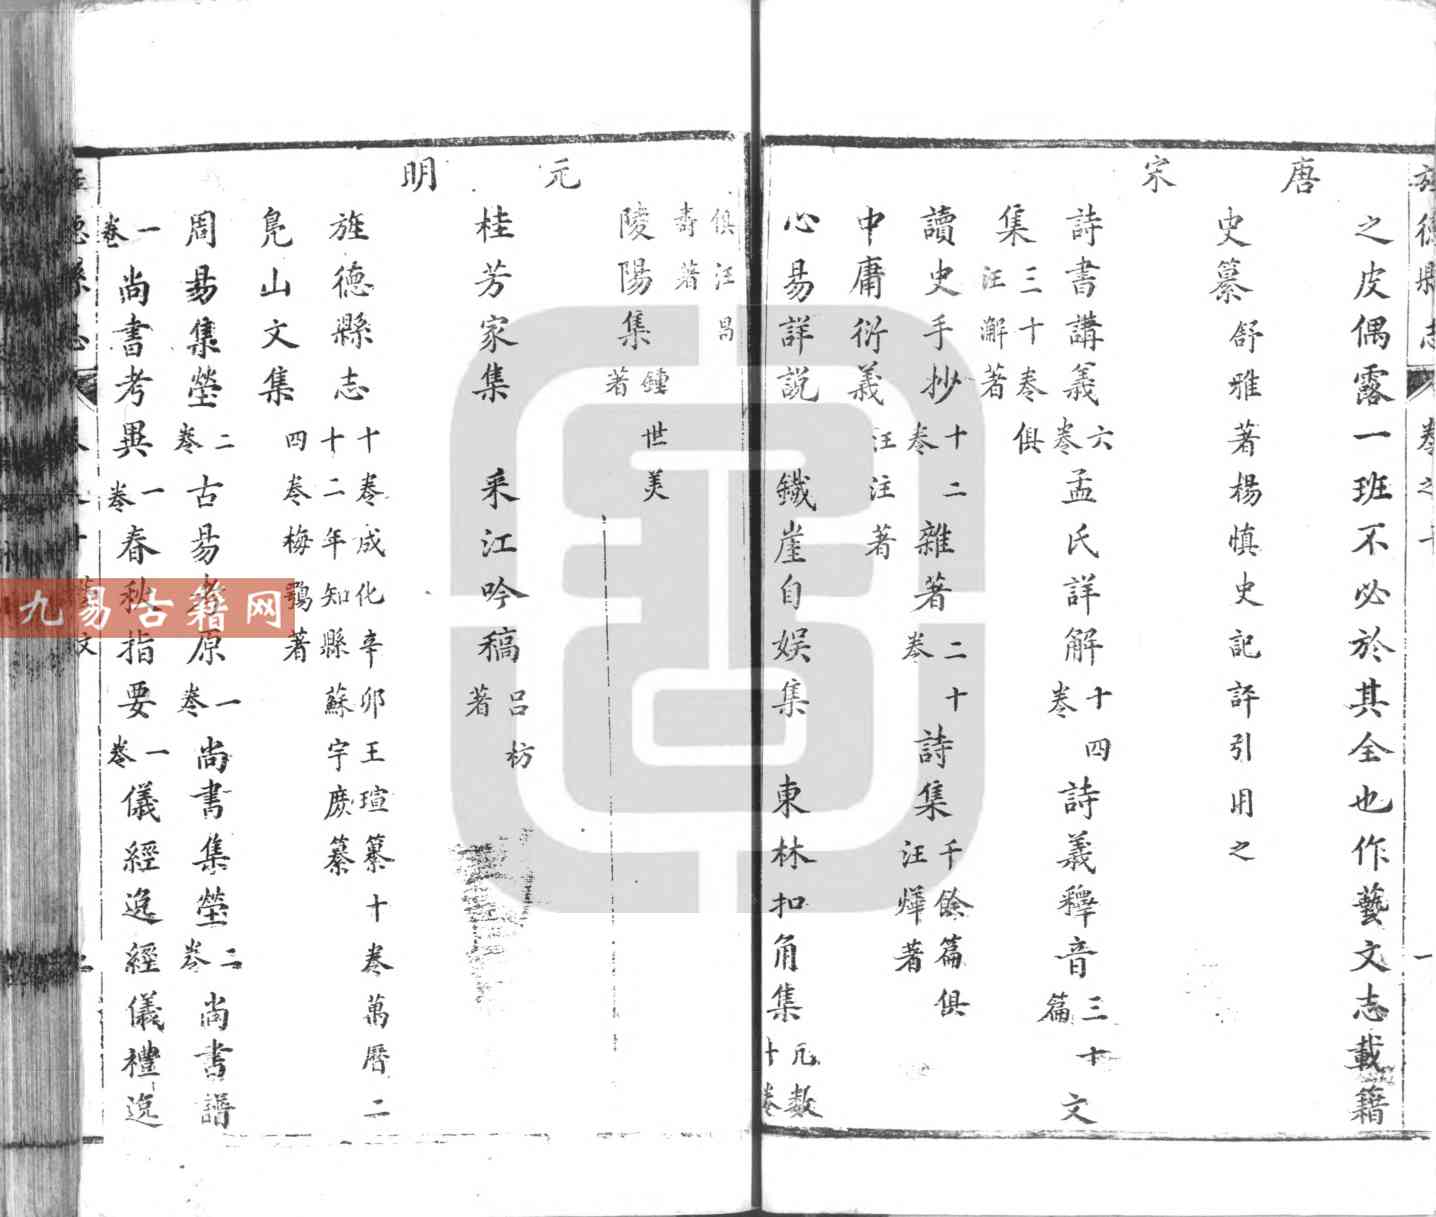 之皮偶露一班不必於其全也作藝文志載籍
唐
史纂 舒雅著楊慎史記評引用之
宋
詩書講義 六卷 孟氏詳解 十四卷 詩義釋音 三十篇 文
集 三十卷俱汪澥著
讀史手抄 十二卷 雜著 二十卷 詩集 千餘篇俱汪燁著
中庸衍義 汪注著
心易詳説 鐵崖自娛集 東林扣角集 凡數十卷
俱汪昌壽著
陵陽集 鍾世美著
元
桂芳家集 釆江吟稿 呂枋著
明
旌德縣志 十卷成化辛卯王瑄纂十卷萬曆二十二年知縣蘇宇庶纂
鳧山文集 四卷梅鶚著
周易集瑩 二卷 古易考原 一卷 尚書集瑩 二卷 尚書譜
一卷 尚書考異 一卷 春秋指要 一卷 儀經逸經儀禮逸
九易古籍网